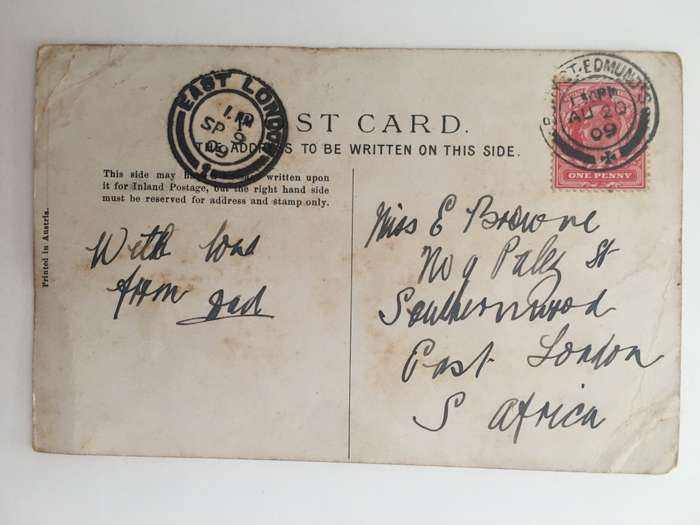 POST CARD.
THE ADDRESS TO BE WRITTEN ON THIS SIDE.
This side may written upon
it for Inland Postage, but the right hand side
must be reserved for address and stamp only.
Printed in Austria.
With love
from dad
Miss E Browne
No 9 Paley St
Southernwood
East London
S Africa
EAST LONDON
SP 9
09
ST. EDMUNDS
AU 20
09
ONE PENNY